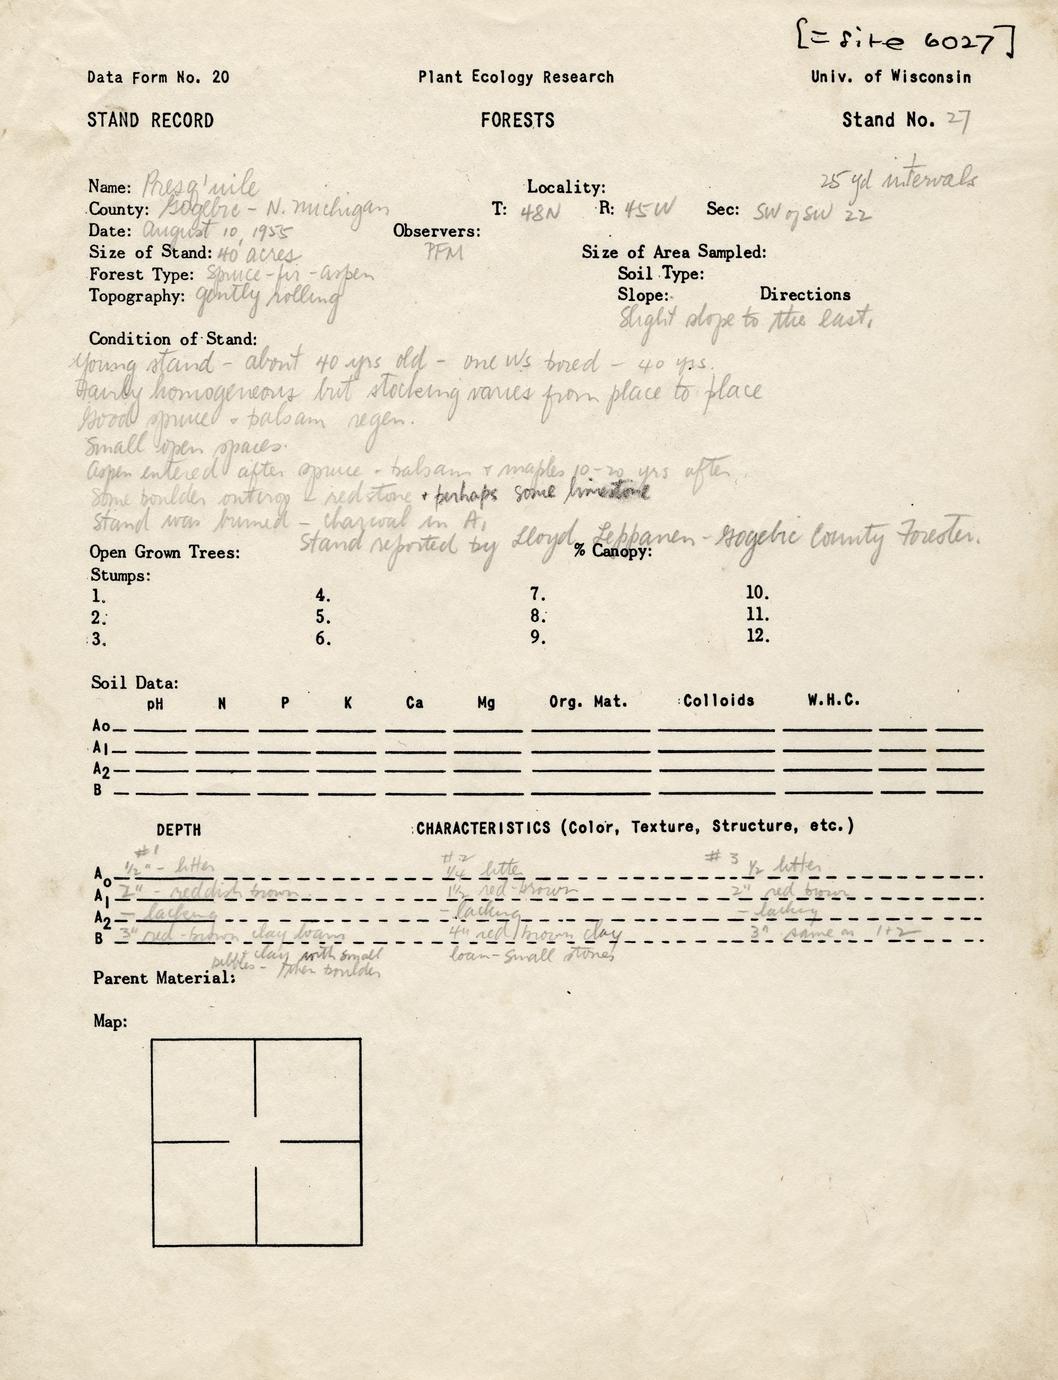 [= site 6027]
Data Form No. 20 Plant Ecology Research Univ. of Wisconsin
STAND RECORD FORESTS Stand No. 27
25 yd intervals
Name: Presq'uile Locality:
County: Gogebic - N. Michigan T: 48N R: 45W Sec: SW of SW 22
Date: August 10, 1955 Observers:
Size of Stand: 40 acres PFM Size of Area Sampled:
Forest Type: Spruce-fir-aspen Soil Type:
Topography: gently rolling Slope: Directions
Slight slope to the east.
Condition of Stand:
Young stand - about 40 yrs old - one Ws bored - 40 yrs.
Fairly homogeneous but stocking varies from place to place
Good spruce + balsam regen.
Small open spaces.
Aspen entered after spruce - balsam + maples 10-20 yrs after.
Some boulder outcrop - redstone + perhaps some limestone
Stand was burned - charcoal in A1
Stand reported by Lloyd Leppanen - Gogebic County Forester.
Open Grown Trees: % Canopy:
Stumps:
1. 4. 7. 10.
2. 5. 8. 11.
3. 6. 9. 12.
Soil Data:
pH N P K Ca Mg Org. Mat. Colloids W.H.C.
Ao
A1
A2
B
DEPTH CHARACTERISTICS (Color, Texture, Structure, etc.)
#1 #2 #3
Ao 1/2" - litter 1/4 litter 1/2 litter
A1 2" - reddish brown 1 1/2 red-brown 2" red brown
A2 - lacking - lacking - lacking
B 3" red-brown clay loam 4" red/brown clay 3" same as 1+2
clay with small loam - small stones
pebbles - then boulder
Parent Material:
Map: